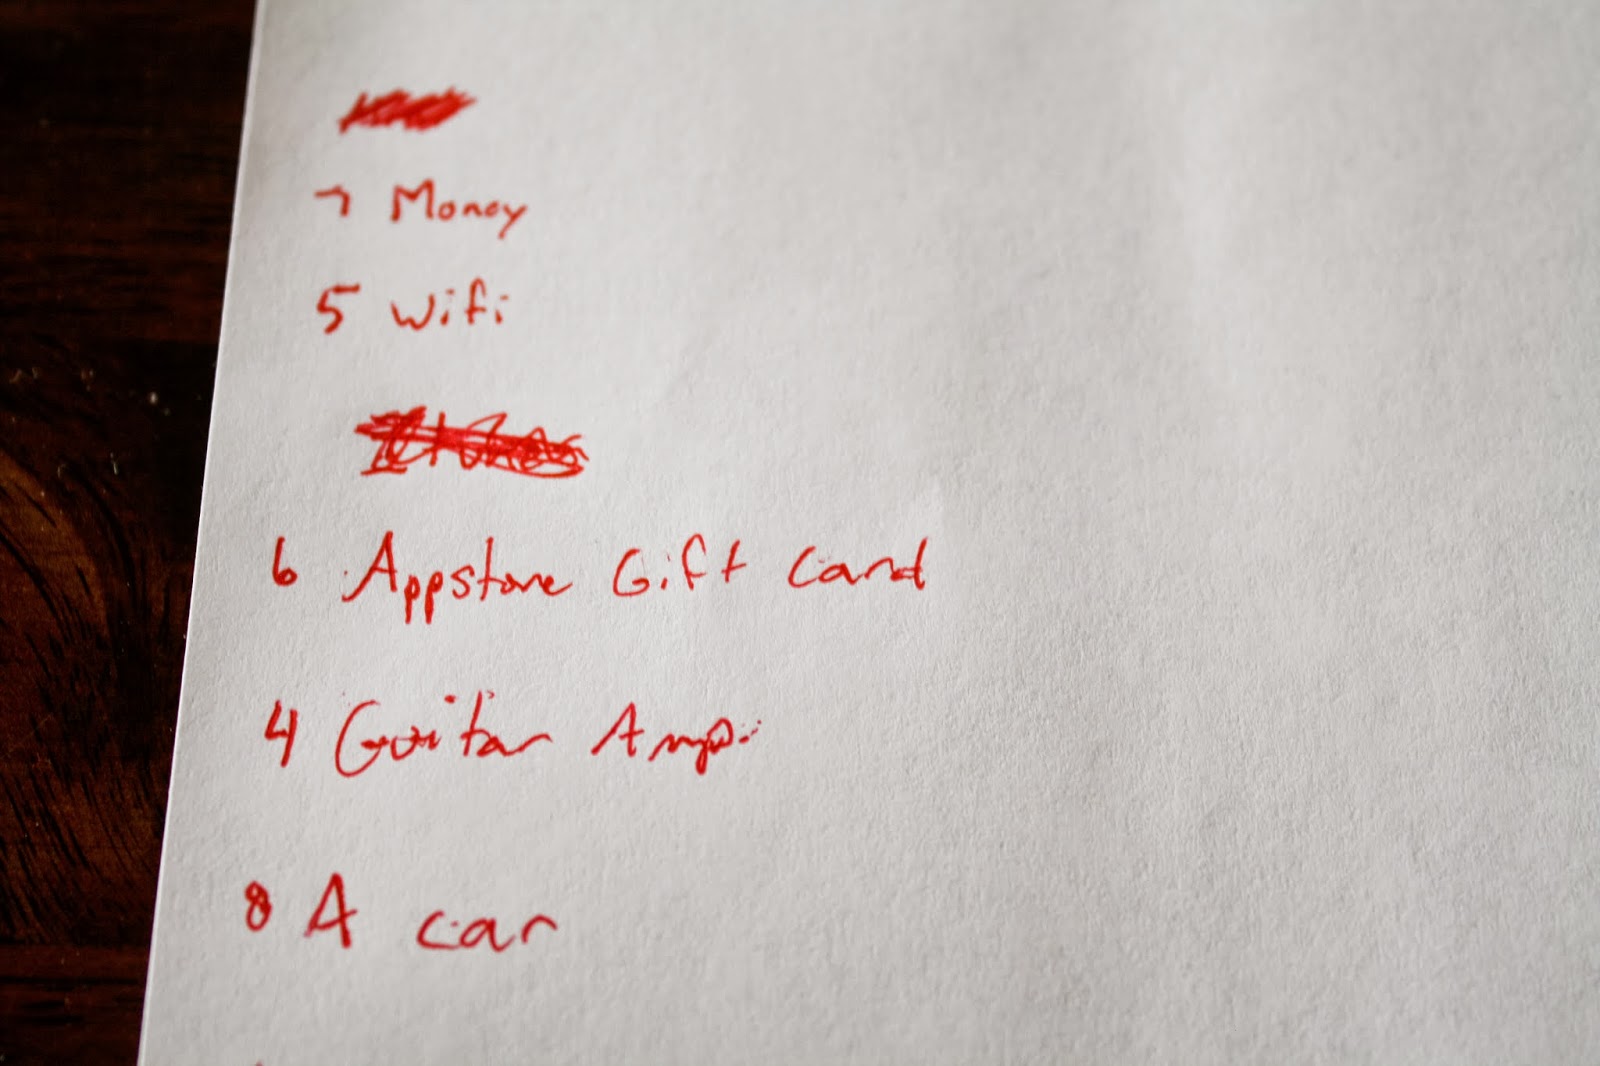 7 Money
5 Wifi
6 Appstore Gift Card
4 Guitar Amp
8 A car